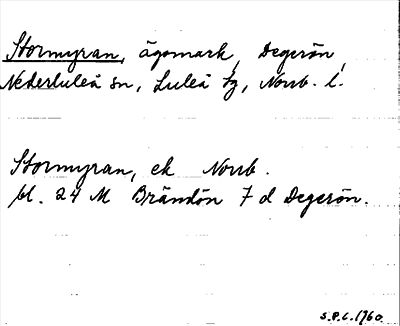 Stormyran, ägomark, Degerön,
Nederluleå sn, Luleå tg, Norrb. l.
Stormyran, ek Norrb.
bl. 24 M Brändön 7 d Degerön.
S.P.L. 1960